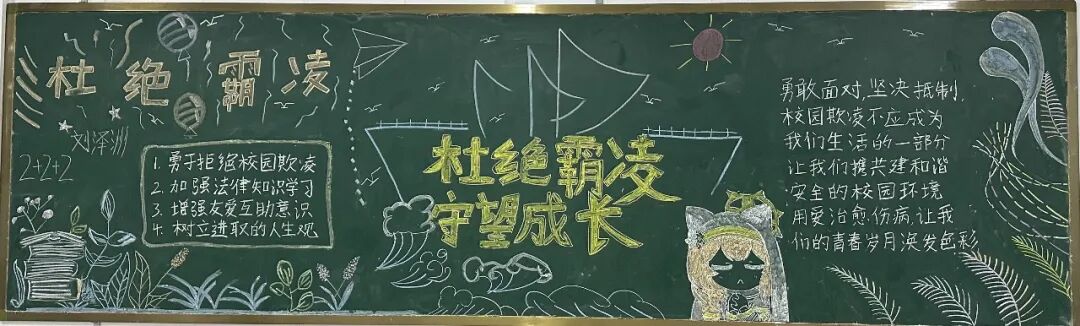 杜绝霸凌
刘泽洲
2+2+2
1. 勇于拒绝校园欺凌
2. 加强法律知识学习
3. 增强友爱互助意识
4. 树立进取的人生观
杜绝霸凌
守望成长
勇敢面对,坚决抵制,
校园欺凌不应成为
我们生活的一部分
让我们携共建和谐
安全的校园环境
用爱治愈伤病,让我
们的青春岁月焕发色彩